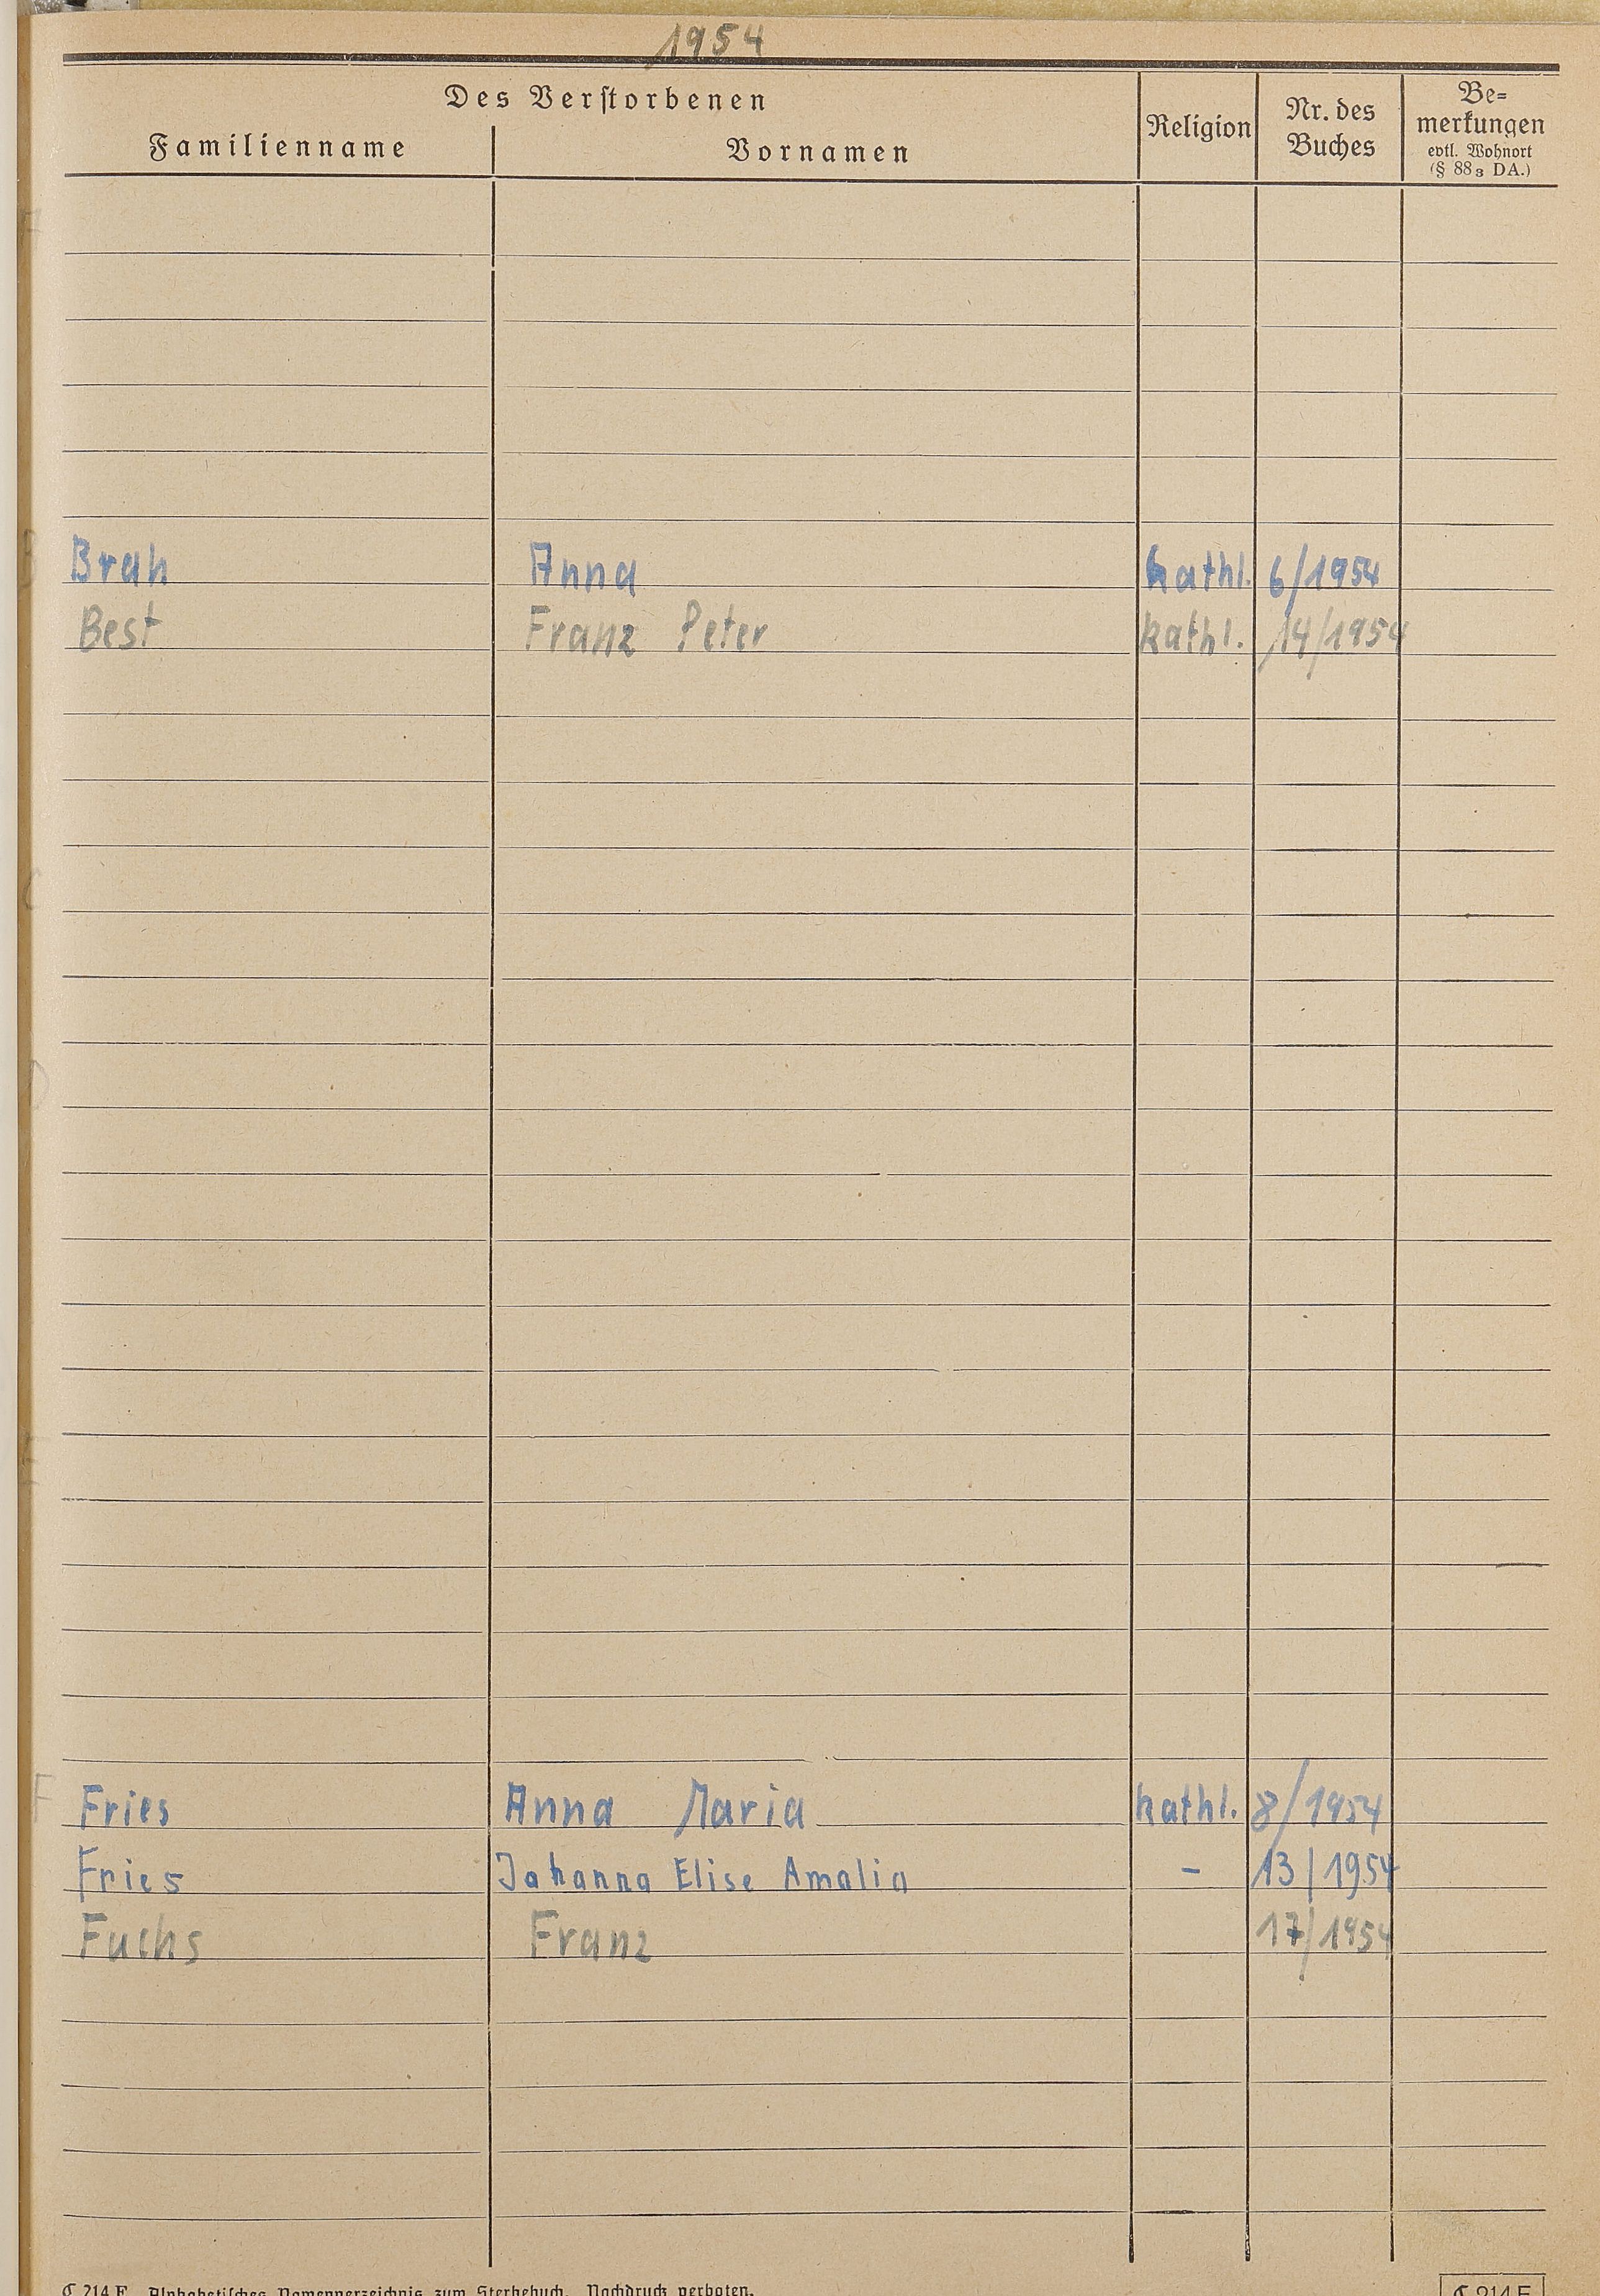 1954
Des Verstorbenen
Familienname Vornamen Religion Nr. des Buches Be=merkungen evtl. Wohnort (§ 88₃ DA.)
B
Brah Anna kathl. 6/1954
Best Franz Peter kathl. 14/1954
C
D
F
Fries Anna Maria kathl. 8/1954
Fries Johanna Elise Amalia - 13/1954
Fuchs Franz 17/1954
C 214 E Alphabetisches Namenverzeichnis zum Sterbebuch. Nachdruck verboten. C 214 E